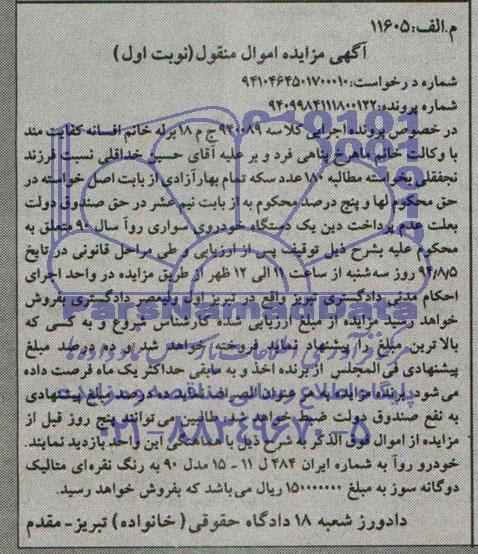 م.الف:۱۱۶۰۵
آگهی مزایده اموال منقول (نوبت اول)
شماره درخواست:۹۴۱۰۴۶۴۵۰۱۷۰۰۰۱۰
شماره پرونده:۹۴۰۹۹۸۴۱۱۱۸۰۰۱۲۲
در خصوص پرونده اجرایی کلاسه ۹۴۰۰۸۹ ج م ۱۸ برله خانم افسانه کفایت مند
با وکالت خانم ماهرخ پناهی فرد و بر علیه آقای حسین خداقلی نسبت فرزند
نجفقلی بخواسته مطالبه ۱۸۰ عدد سکه تمام بهار آزادی از بابت اصل خواسته در
حق محکوم لها و پنج درصد محکوم به از بابت نیم عشر در حق صندوق دولت
بعلت عدم پرداخت دین یک دستگاه خودروی سواری روآ سال ۹۰ متعلق به
محکوم علیه بشرح ذیل توقیف پس از ارزیابی و طی مراحل قانونی در تایخ
۹۴/۸/۵ روز سه شنبه از ساعت ۱۱ الی ۱۲ ظهر از طریق مزایده در واحد اجرای
احکام مدنی دادگستری تبریز واقع در تبریز اول ولیعصر دادگستری بفروش
خواهد رسید مزایده از مبلغ ارزیابی شده کارشناس شروع و به کسی که
بالاترین مبلغ را پیشنهاد نماید فروخته خواهد شد. و ده درصد مبلغ
پیشنهادی فی المجلس از برنده اخذ و به مابقی حداکثر یک ماه فرصت داده
می شود. برنده مزایده به هر عنوان انصراف نماید ده درصد مبلغ پیشنهادی
به نفع صندوق دولت ضبط خواهد شد. طالبین می توانند پنج روز قبل از
مزایده از اموال فوق الذکر به شرح ذیل با هماهنگی این واحد بازدید نمایند.
خودرو روآ به شماره ایران ۴۸۴ ل ۱۱ - ۱۵ مدل ۹۰ به رنگ نقره ای متالیک
دوگانه سوز به مبلغ ۱۵۰۰۰۰۰۰۰ ریال می باشد که بفروش خواهد رسید.
دادورز شعبه ۱۸ دادگاه حقوقی (خانواده) تبریز - مقدم
ParsNamadData
پایگاه اطلاع رسانی مناقصه مزایده
۰۲۱-۸۸۳۴۹۶۷۰-۵